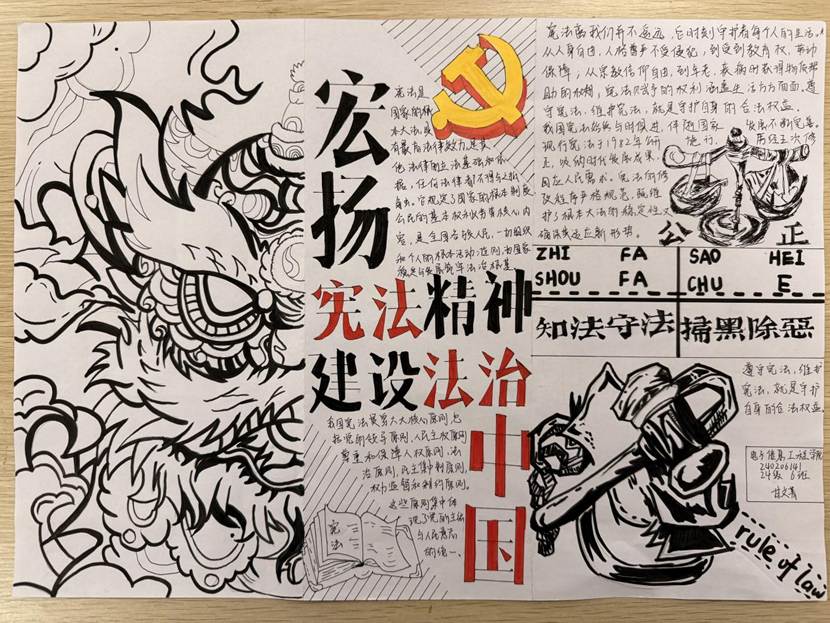 宏扬
宪法精神
建设法治
中国
宪法是
国家的根
本大法,具
有最高法律效力,是其
他法律的立法基础和依
据,任何法律都不得与之抵
触。它规定了国家的根本制度
公民的基本权利义务等核心内
容,是全国各族人民、一切组织
和个人的根本活动准则,为国家
我国宪法贯穿六大核心原则,包
括党的领导原则、人民主权原则
尊重和保障人权原则、法
治原则、民主集中制原则、
权力监督和制约原则。
这些原则集中体
现了党的主张
与人民意志
的统一。
宪法
宪法离我们并不遥远,它时刻守护着每个人的生活。
从人身自由、人格尊严不受侵犯,到受到教育权、劳动
保障;从宗教信仰自由,到年老、疾病时获得物质帮
助的权利,宪法赋予的权利涵盖生活方方面面,遵
守宪法、维护宪法,就是守护自身的合法权益。
我国宪法始终与时俱进,伴随国家发展不断完善。
现行宪法于1982年
施行,历经五次修
正,吸纳时代发展成果,
回应人民需求。宪法的修
改程序严格规范,既维
护了根本大法的稳定性,又
确保其适应新形势。
公正
ZHI FA
SHOU FA
SAO HEI
CHU E
知法守法
掃黑除惡
遵守宪法、维护
宪法,就是守护
自身的合法权益。
电子信息工程学院
240206141
24级 6班
rule of law